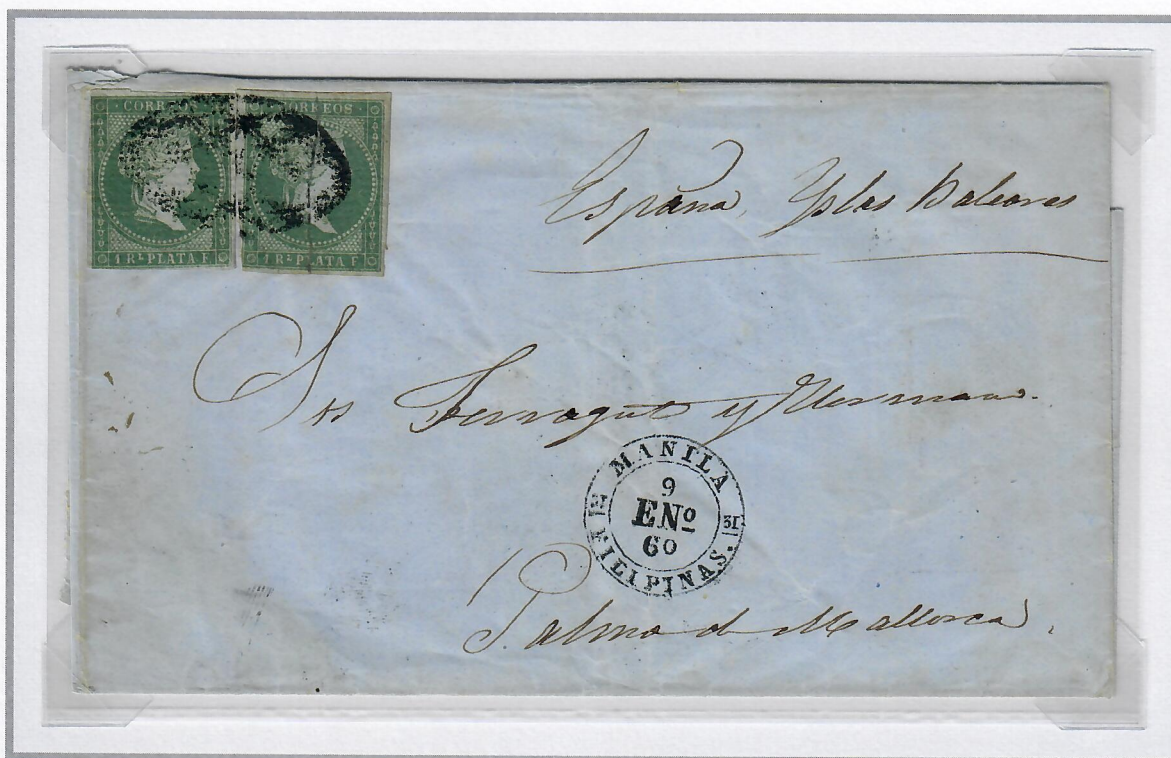 CORREOS CORREOS
1 Rl PLATA F 1 Rl PLATA F
España, Yslas Baleares
Srs Ferragut y Hermano.
MANILA
9
ENº
60
31 31
FILIPINAS.
Palma de Mallorca.